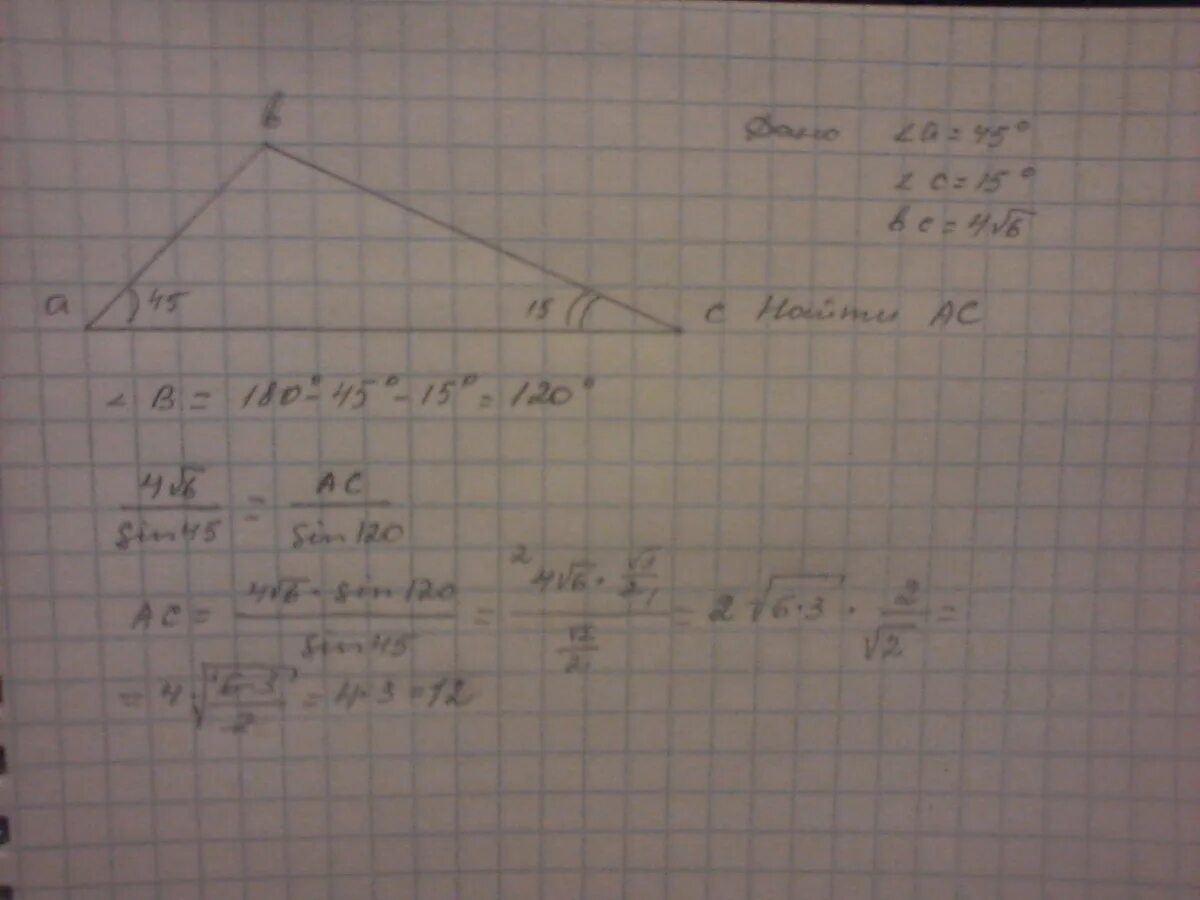 в
Дано ∠a = 45°
∠ c = 15°
вc = 4√6
a 45 15 c Найти AC
∠ B = 180° - 45° - 15° = 120°
4√6/sin45 = AC/sin120
AC = 4√6 · sin120/sin45 = ²4√6 · √3/2₁/√2/2₁ = 2√6·3 · 2/√2 =
= 4√6·3/2 = 4·3 = 12